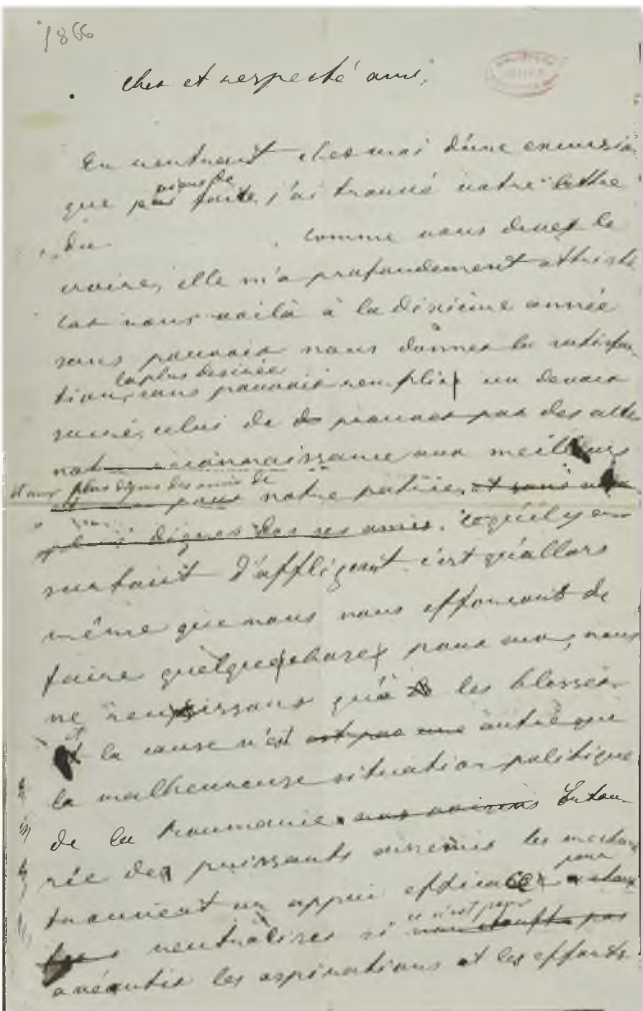 1866
Cher et respecté ami,
En rentrant chez moi d'une excursion
que j'avais faite, j'ai trouvé votre lettre
du , comme vous devez le
croire, elle m'a profondement attristé
car nous voilà à la dixième année
sans pouvoir nous donner la satisfac-
la plus desirée
tion, sans pouvoir remplir un devoir
sacré, celui de prouver par des actes
notre reconnaissance aux meilleurs
et aux plus dignes des amis de
notre patrie, et sans
dignes des ses amis. Ce qu'il y a
surtout d'affligeant c'est qu'allors
même que nous nous efforcont de
faire quelque chose pour eux, nous
ne reussissons qu'à les blesser
et la cause n'est est pas une autre que
la malheureuse situation politique
de la Roumanie. Entou-
rée de puissants ennemis les
trouvent un appui efficace pour
neutraliser si ce n'est pour
anéantir les aspirations et les efforts